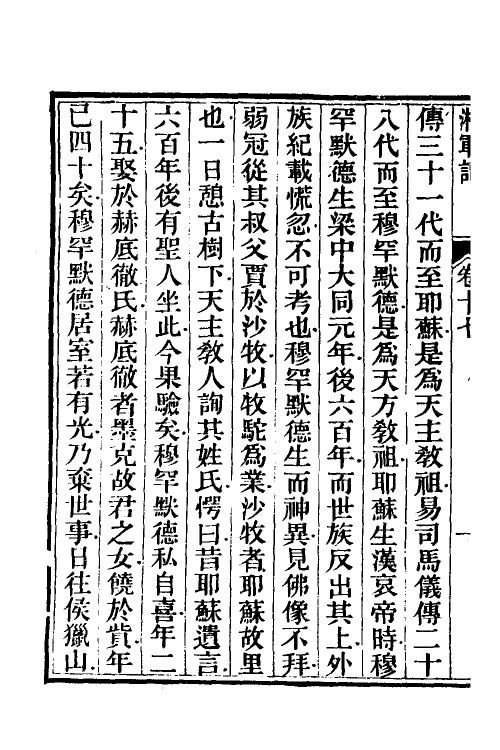 卷十七
一
傳三十一代而至耶蘇是爲天主教祖易司馬儀傳二十
八代而至穆罕默德是爲天方教祖耶蘇生漢哀帝時穆
罕默德生梁中大同元年後六百年而世族反出其上外
族紀載慌忽不可考也穆罕默德生而神異見佛像不拜
弱冠從其叔父賈於沙牧以牧駝爲業沙牧者耶蘇故里
也一日憩古樹下天主教人詢其姓氏愕曰昔耶蘇遺言
六百年後有聖人坐此今果驗矣穆罕默德私自喜年二
十五娶於赫底徹氏赫底徹者墨克故君之女饒於貲年
已四十矣穆罕默德居室若有光乃棄世事日往侯獵山